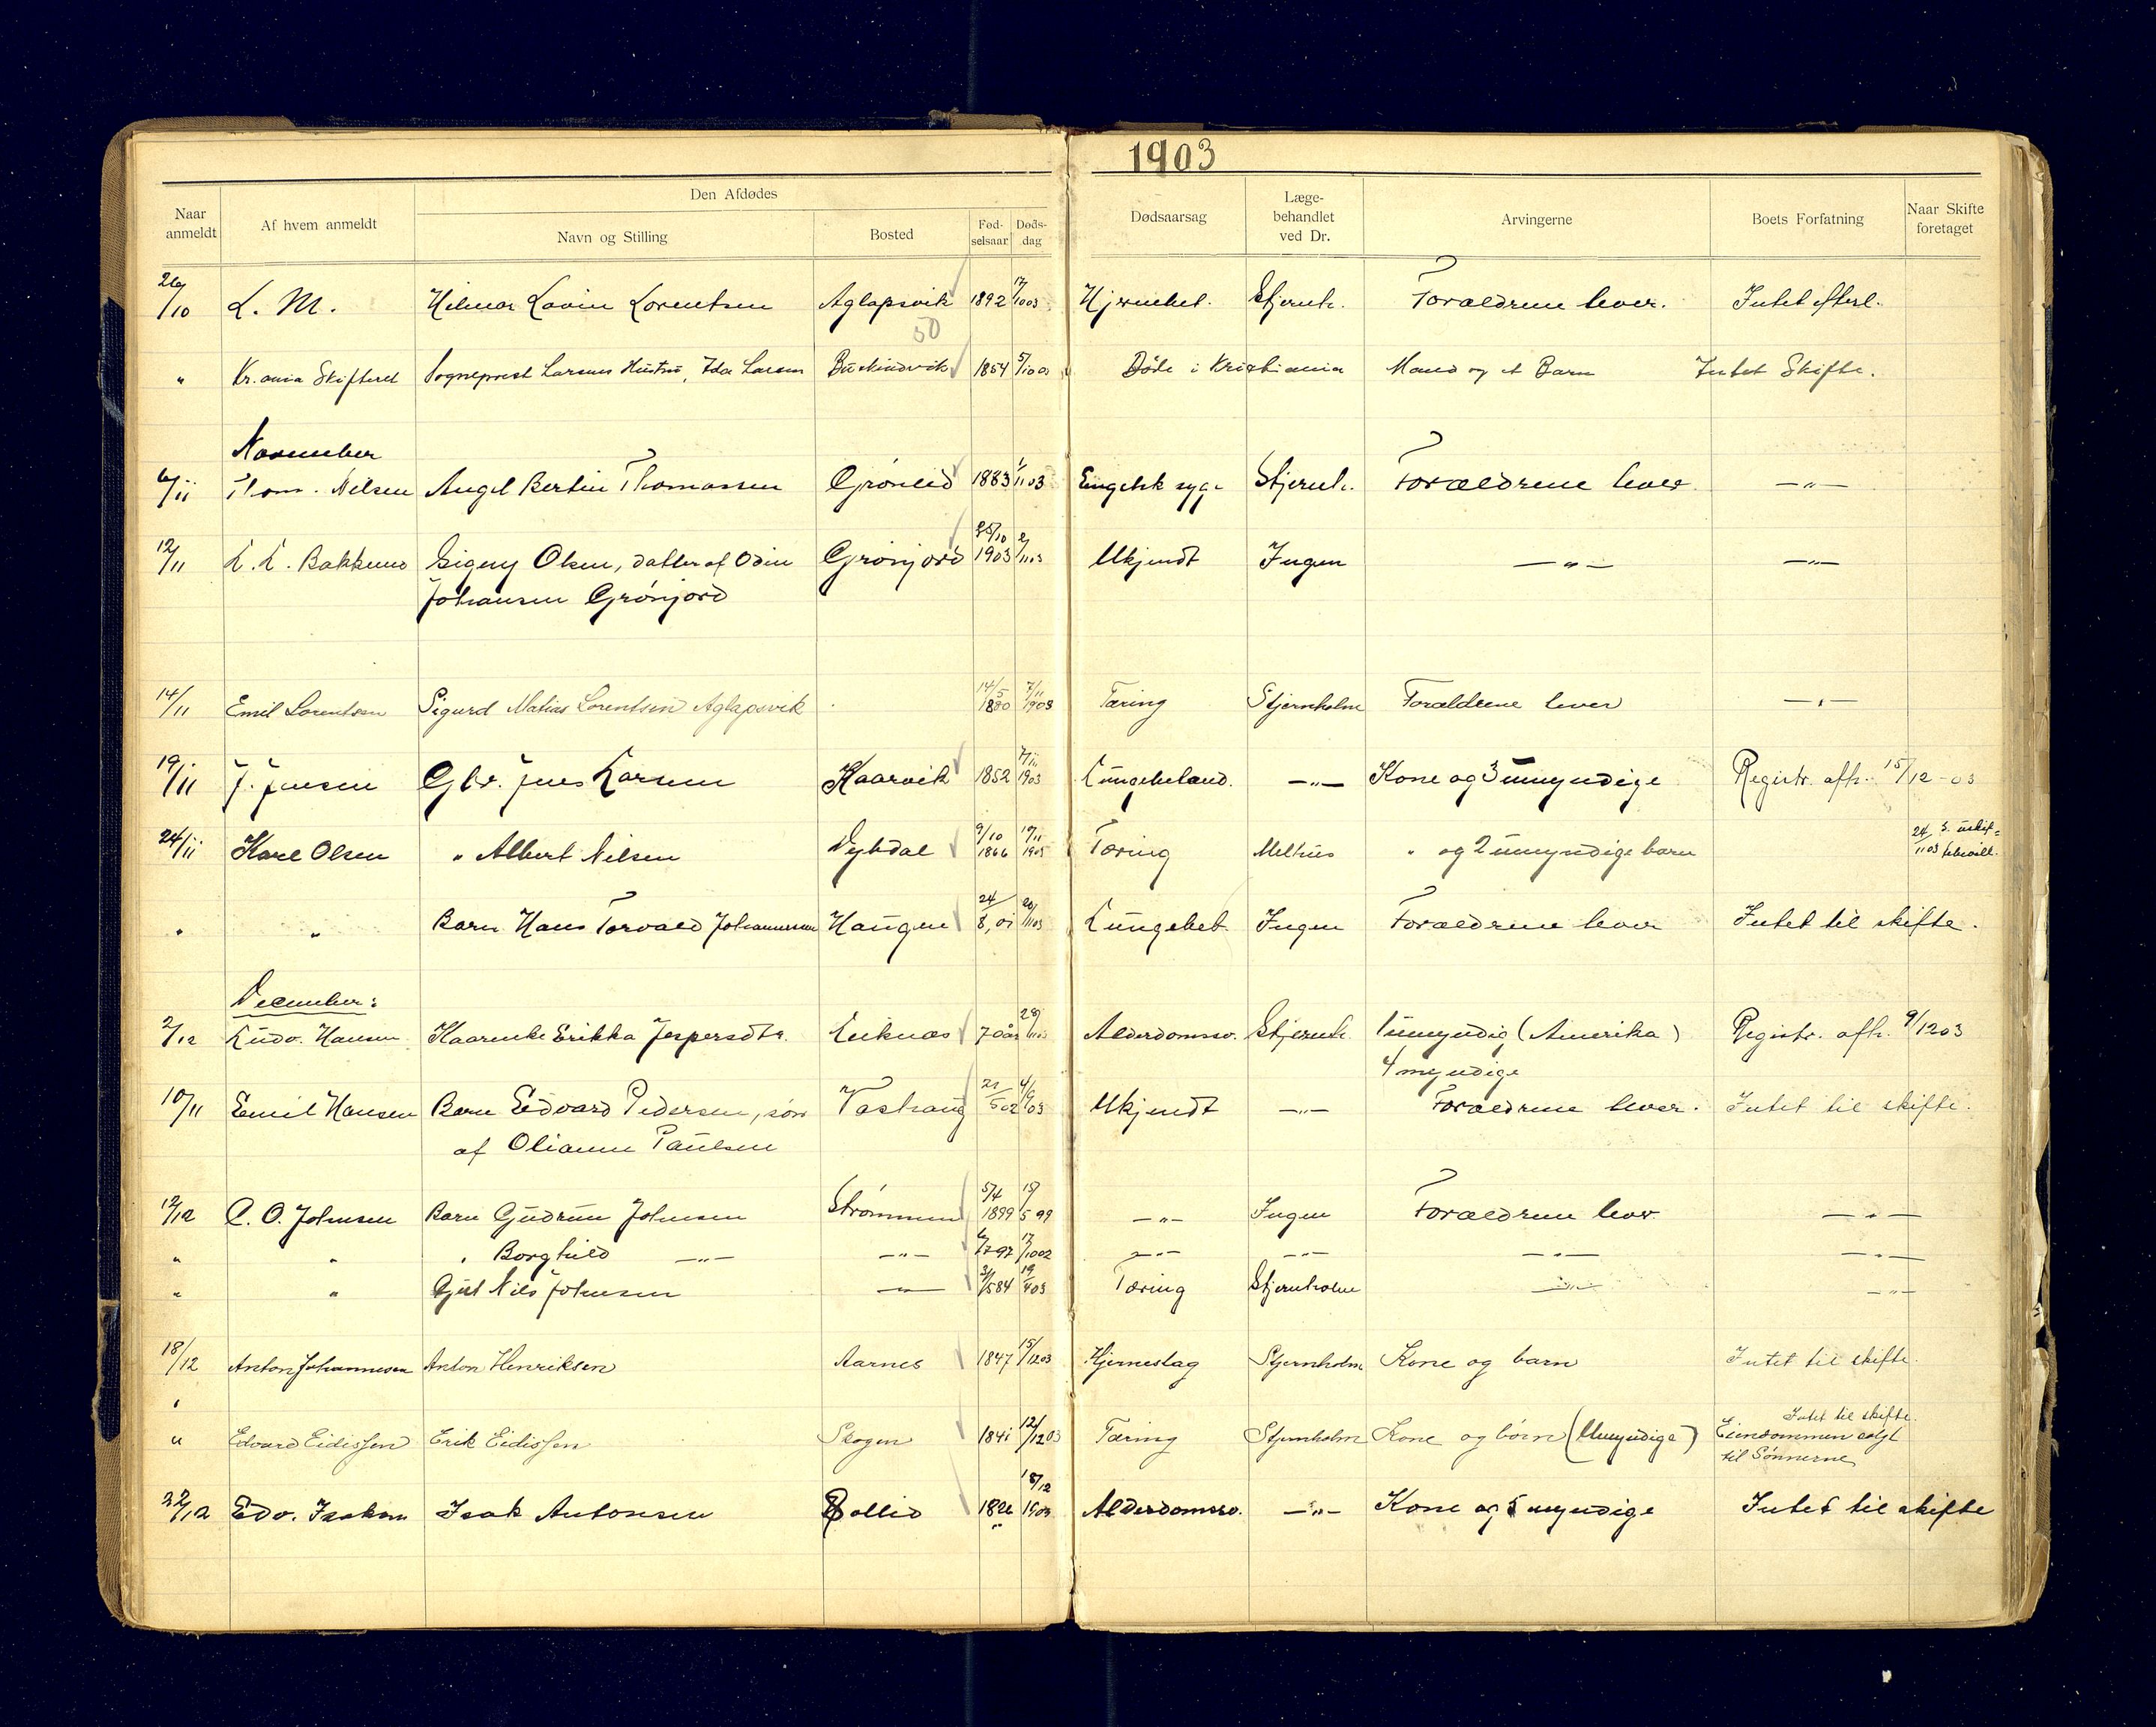 1903
Naar anmeldt | Af hvem anmeldt | Den Afdødes | Navn og Stilling | Bosted | Fød-selsaar | Døds-dag | Dødsaarsag | Læge-behandlet ved Dr. | Arvingerne | Boets Forfatning | Naar Skifte foretaget
26/10 L. M. Hilmar Lavin Lorentsen Aglapsvik 1892 17/10 03 Hjernebet. Stjernh. Forældrene lever. Intet efterl.
50
" Kr.ania Skifteret Sogneprest Larsens Hustru, Ida Larsen 1854 5/10 03 Døde i Kristiania Mand og et Barn Intet Skifte.
November
6/11 Thom. Nilsen Angel Bertin Thomassen Grønlid 1883 1/11 03 Engelsk syge Stjernh. Forældrene lever —"—
12/11 L. L. Bakkund Signy Olsen, datter af Odin Grønjord 25/10 1903 2/11 03 Ukjendt Ingen —"— —"—
Johansen Grønjord
14/11 Emil Lorentsen Sigurd Matias Lorentsen Aglapsvik 14/5 1880 7/11 1903 Tæring Stjernholm Forældrene lever —"—
19/11 J. Jensen Gbr. Jens Larsen Kaarvik 1852 7/11 1903 Lungebetænd. —"— Kone og 3 umyndige Registr. afh. 15/12-03
24/11 Karl Olsen " Albert Nilsen Dybdal 9/10 1866 19/11 1903 Tæring Melhus " og 2 umyndige barn 24/11 03 s. uskif=
" " Barn Hans Torvald Johannesen Haugen 24/8, 01 20/11 03 Lungebet. Ingen Forældrene lever Intet til skifte.
December:
2/12 Ludv. Hansen Kaarenke Erikka Jespersdtr. Leiknæs 70 aar 28/11 03 Alderdomssv. Stjernh. 1 umyndig (Amerika) Registr. afh. 9/12 03
4 myndige
10/11 Emil Hansen Barn Edvard Pedersen, søn Vashaug 21/5 02 4/9 03 Ukjendt —"— Forældrene lever. Intet til skifte.
af Olianne Paulsen
12/12 C. O. Johnsen Barn Gudrun Johnsen Strømmen 5/4 1899 15/5 99 —"— Ingen Forældrene lever —"—
" " " Borghild —"— —"— 6/7 97 17/10 02 —"— —"— —"— —"—
" " Gjut Nils Johnsen —"— 31/5 84 19/4 03 Tæring Stjernholm —"— —"—
18/12 Anton Johannesen Anton Henriksen Aarnes 1847 15/12 03 Hjerneslag Stjernholm Kone og barn Intet til skifte.
" Edvard Eidissen Erik Eidissen Skogen 1841 12/12 03 Tæring Stjernholm Kone og børn (Umyndige) Intet til skifte.
Eiendommen solgt
til Sønnerne
22/12 Edv. Isaksen Isak Antonsen Rollid 1826 18/12 1903 Alderdomssv. —"— Kone og 5 myndige Intet til skifte